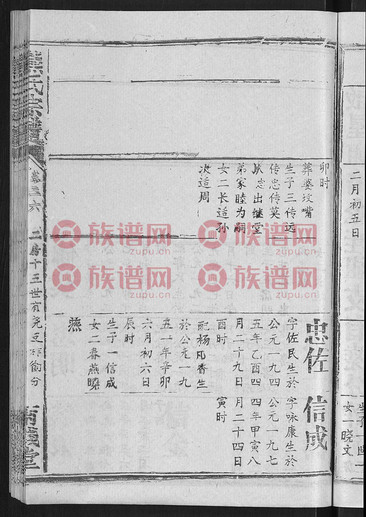 二月初五日
女一晓文
卯时
葬婆坟嘴
生子三传远
传忠传英
忠出继堂
弟家睦为嗣
女二长适孙
次适周
忠佐 信成
字佐民生於 字咏康生於
公元一九四 公元一九七
五年乙酉四 四年甲寅八
月二十九日 月二十四日
酉时 寅时
配杨凡香生
於公元一九
五一年辛卯
六月初六日
辰时
生子一信成
女二春燕晓
燕
氏宗譜
二房十三世
堂
族谱网
www.zupu.cn
族谱网
www.zupu.cn
族谱网
www.zupu.cn
族谱网
www.zupu.cn